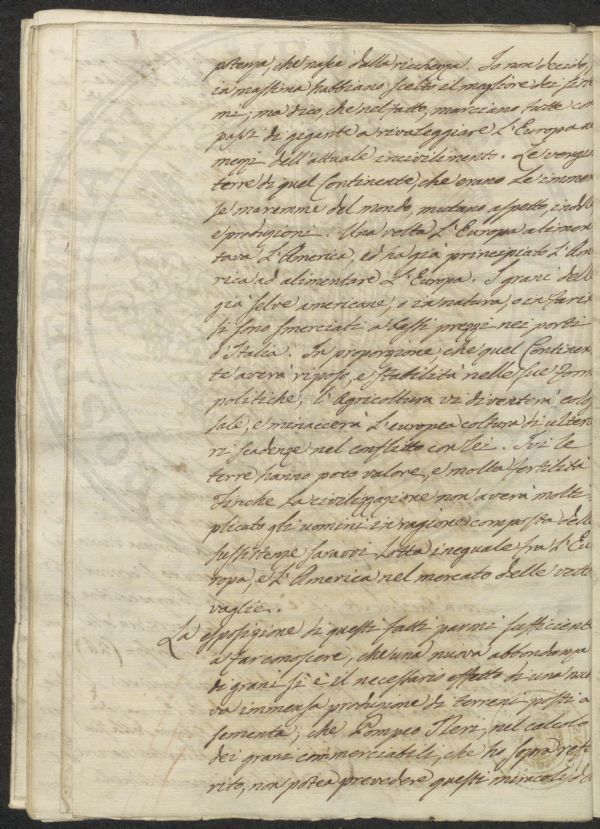 potenza, che nasce dalla ricchezza. Io non decido,
in massima habbiano scelto il migliore dei siste
mi; ma dico, che nel fatto, marciano tutte con
passi di gigante a rivaleggiare l'Europa nei
mezzi dell'attuale incivilimento. Le vergini
terre di quel Continente, che erano le immen
se maremme del mondo, mutano aspetto, indole
e produzioni. Una volta l'Europa alimen
tava l'America, ed ha già principiato l'Ame
rica ad alimentare l'Europa. I grani delle
già selve americane, o in natura, o in farine
si sono smerciati a bassi prezzi nei porti
d'Italia. In proporzione, che quel Continen
te averà riposo, e stabilità nelle sue forme
politiche, l'Agricoltura vi diventerà colos
sale, e minaccerà l'europea coltura di ulterio
ri scadenze nel conflitto con lei. Ivi le
terre hanno poco valore, e molta fertilità
Finche la civilizzazione non averà molti
plicato gli uomini in ragione composta delle
sussistenze saravvi lotta ineguale fra l'Eu
ropa, e l'America nel mercato delle vetto
vaglie.
La esposizione di questi fatti parmi sufficiente
a far conoscere, che una nuova abbondanza
di grani si è il necessario effetto di una nuo
va immensa produzione di terreni posti a
sementa; che Pompeo Neri, nel calcolo
dei grani commerciabili, che ho sopra refe
rito, non potea prevedere questi miracoli d